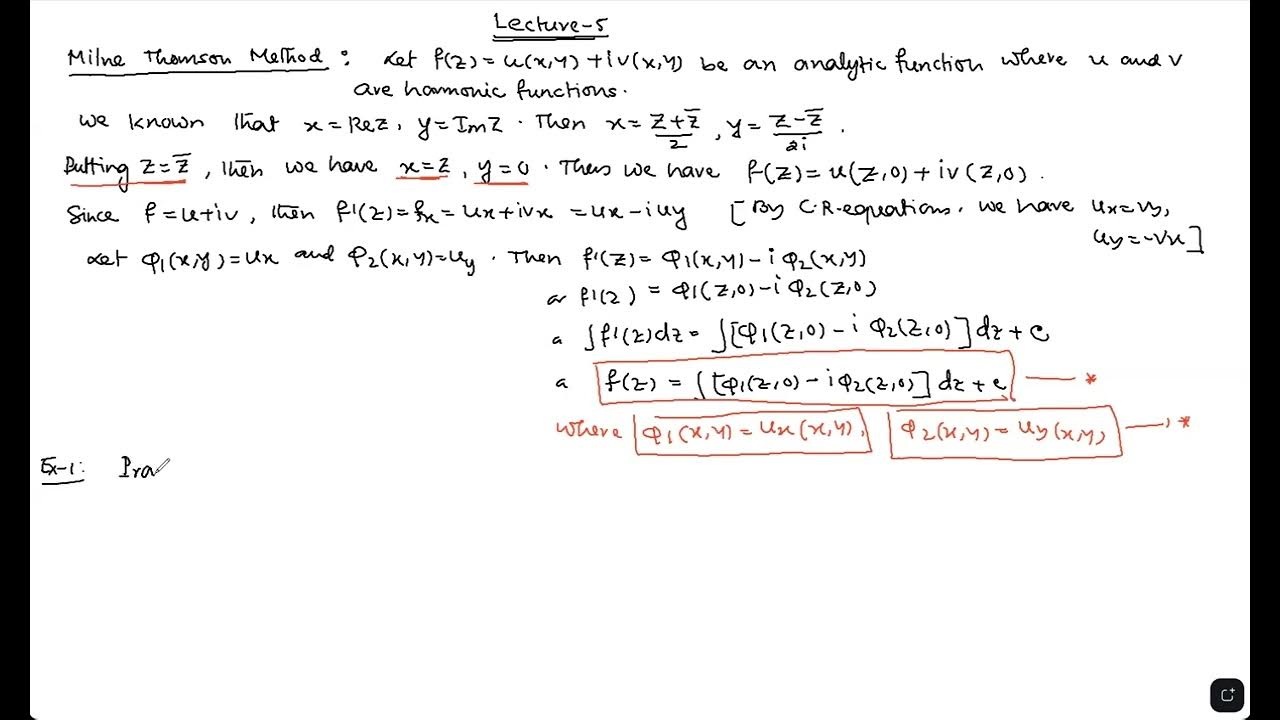 Lecture-5
Milne Thomson Method : Let f(z) = u(x,y) + iv(x,y) be an analytic function where u and v
are harmonic functions.
We known that x = Re z, y = Im z. Then x = (z+z̅)/2, y = (z-z̅)/2i.
Putting z = z̅, then we have x = z, y = 0. Thus we have f(z) = u(z,0) + iv(z,0).
Since f = u+iv, then f'(z) = fx = ux + ivx = ux - iuy [By C.R. equations, we have ux = vy,
uy = -vx]
Let φ1(x,y) = ux and φ2(x,y) = uy. Then f'(z) = φ1(x,y) - i φ2(x,y)
or f'(z) = φ1(z,0) - i φ2(z,0)
∫f'(z)dz = ∫[φ1(z,0) - i φ2(z,0)]dz + c
f(z) = ∫[φ1(z,0) - i φ2(z,0)]dz + c *
where φ1(x,y) = ux(x,y), φ2(x,y) = uy(x,y) *
Ex-1: